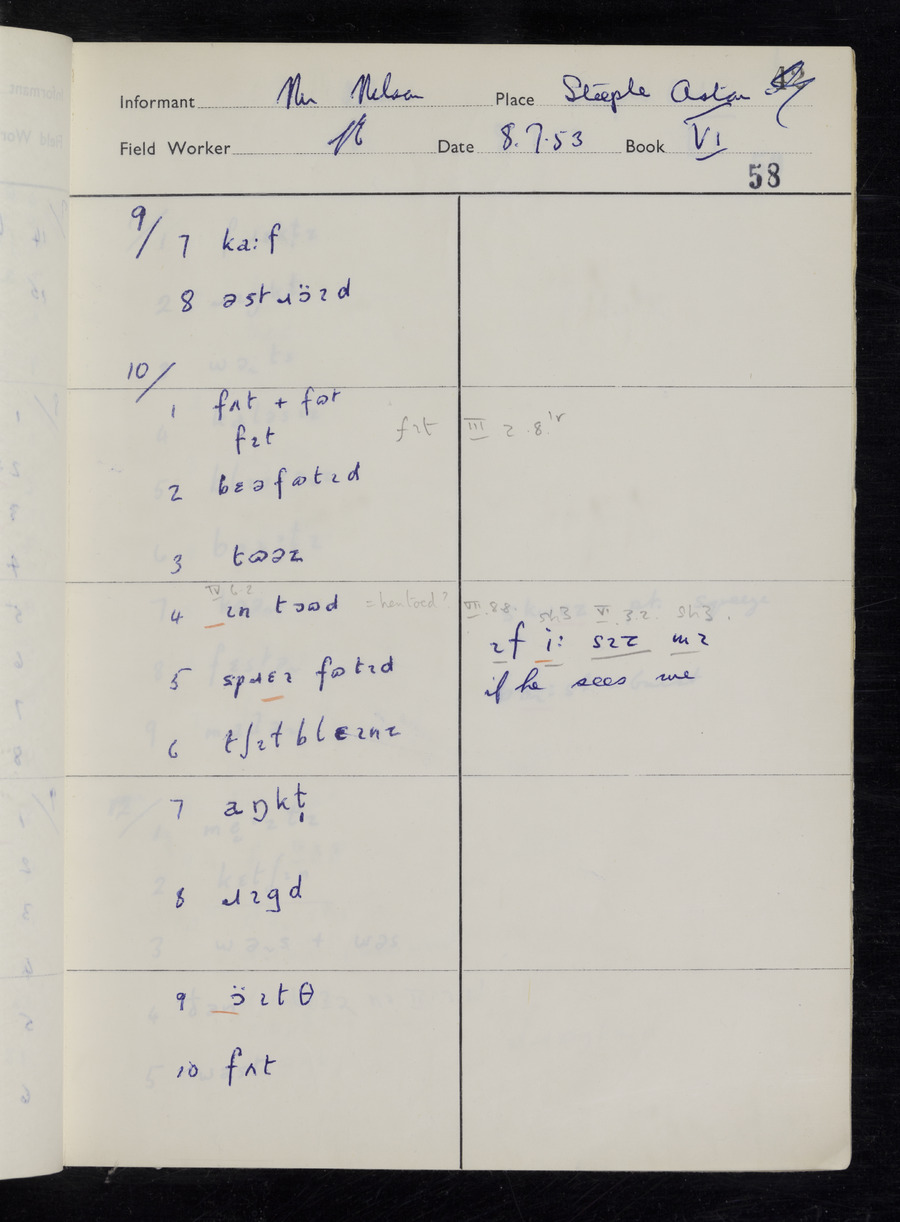 Informant Mr Nelson Place Steeple Aston 42
Field Worker Date 8.7.53 Book VI
58
9/ 7 ka:f
8 əstɹɔ̈ɪd
10/
1 fʌt + fɷt
fɪt fɪt III 2.8.
2 bɛəfɷtɪd
3 tɷəz
IV 6.2
4 ɪn tɔɷd = hentoed? VII.8.8. sh3 VI 3.2. sh3.
ɪf i: sɪz mɪ
5 spɹɛɪ fɷtɪd if he sees me
6 tʃɪtblɛɪnz
7 aŋkt̩
8 ɹɪgd
9 ɔ̈ɪtθ
10 fʌt